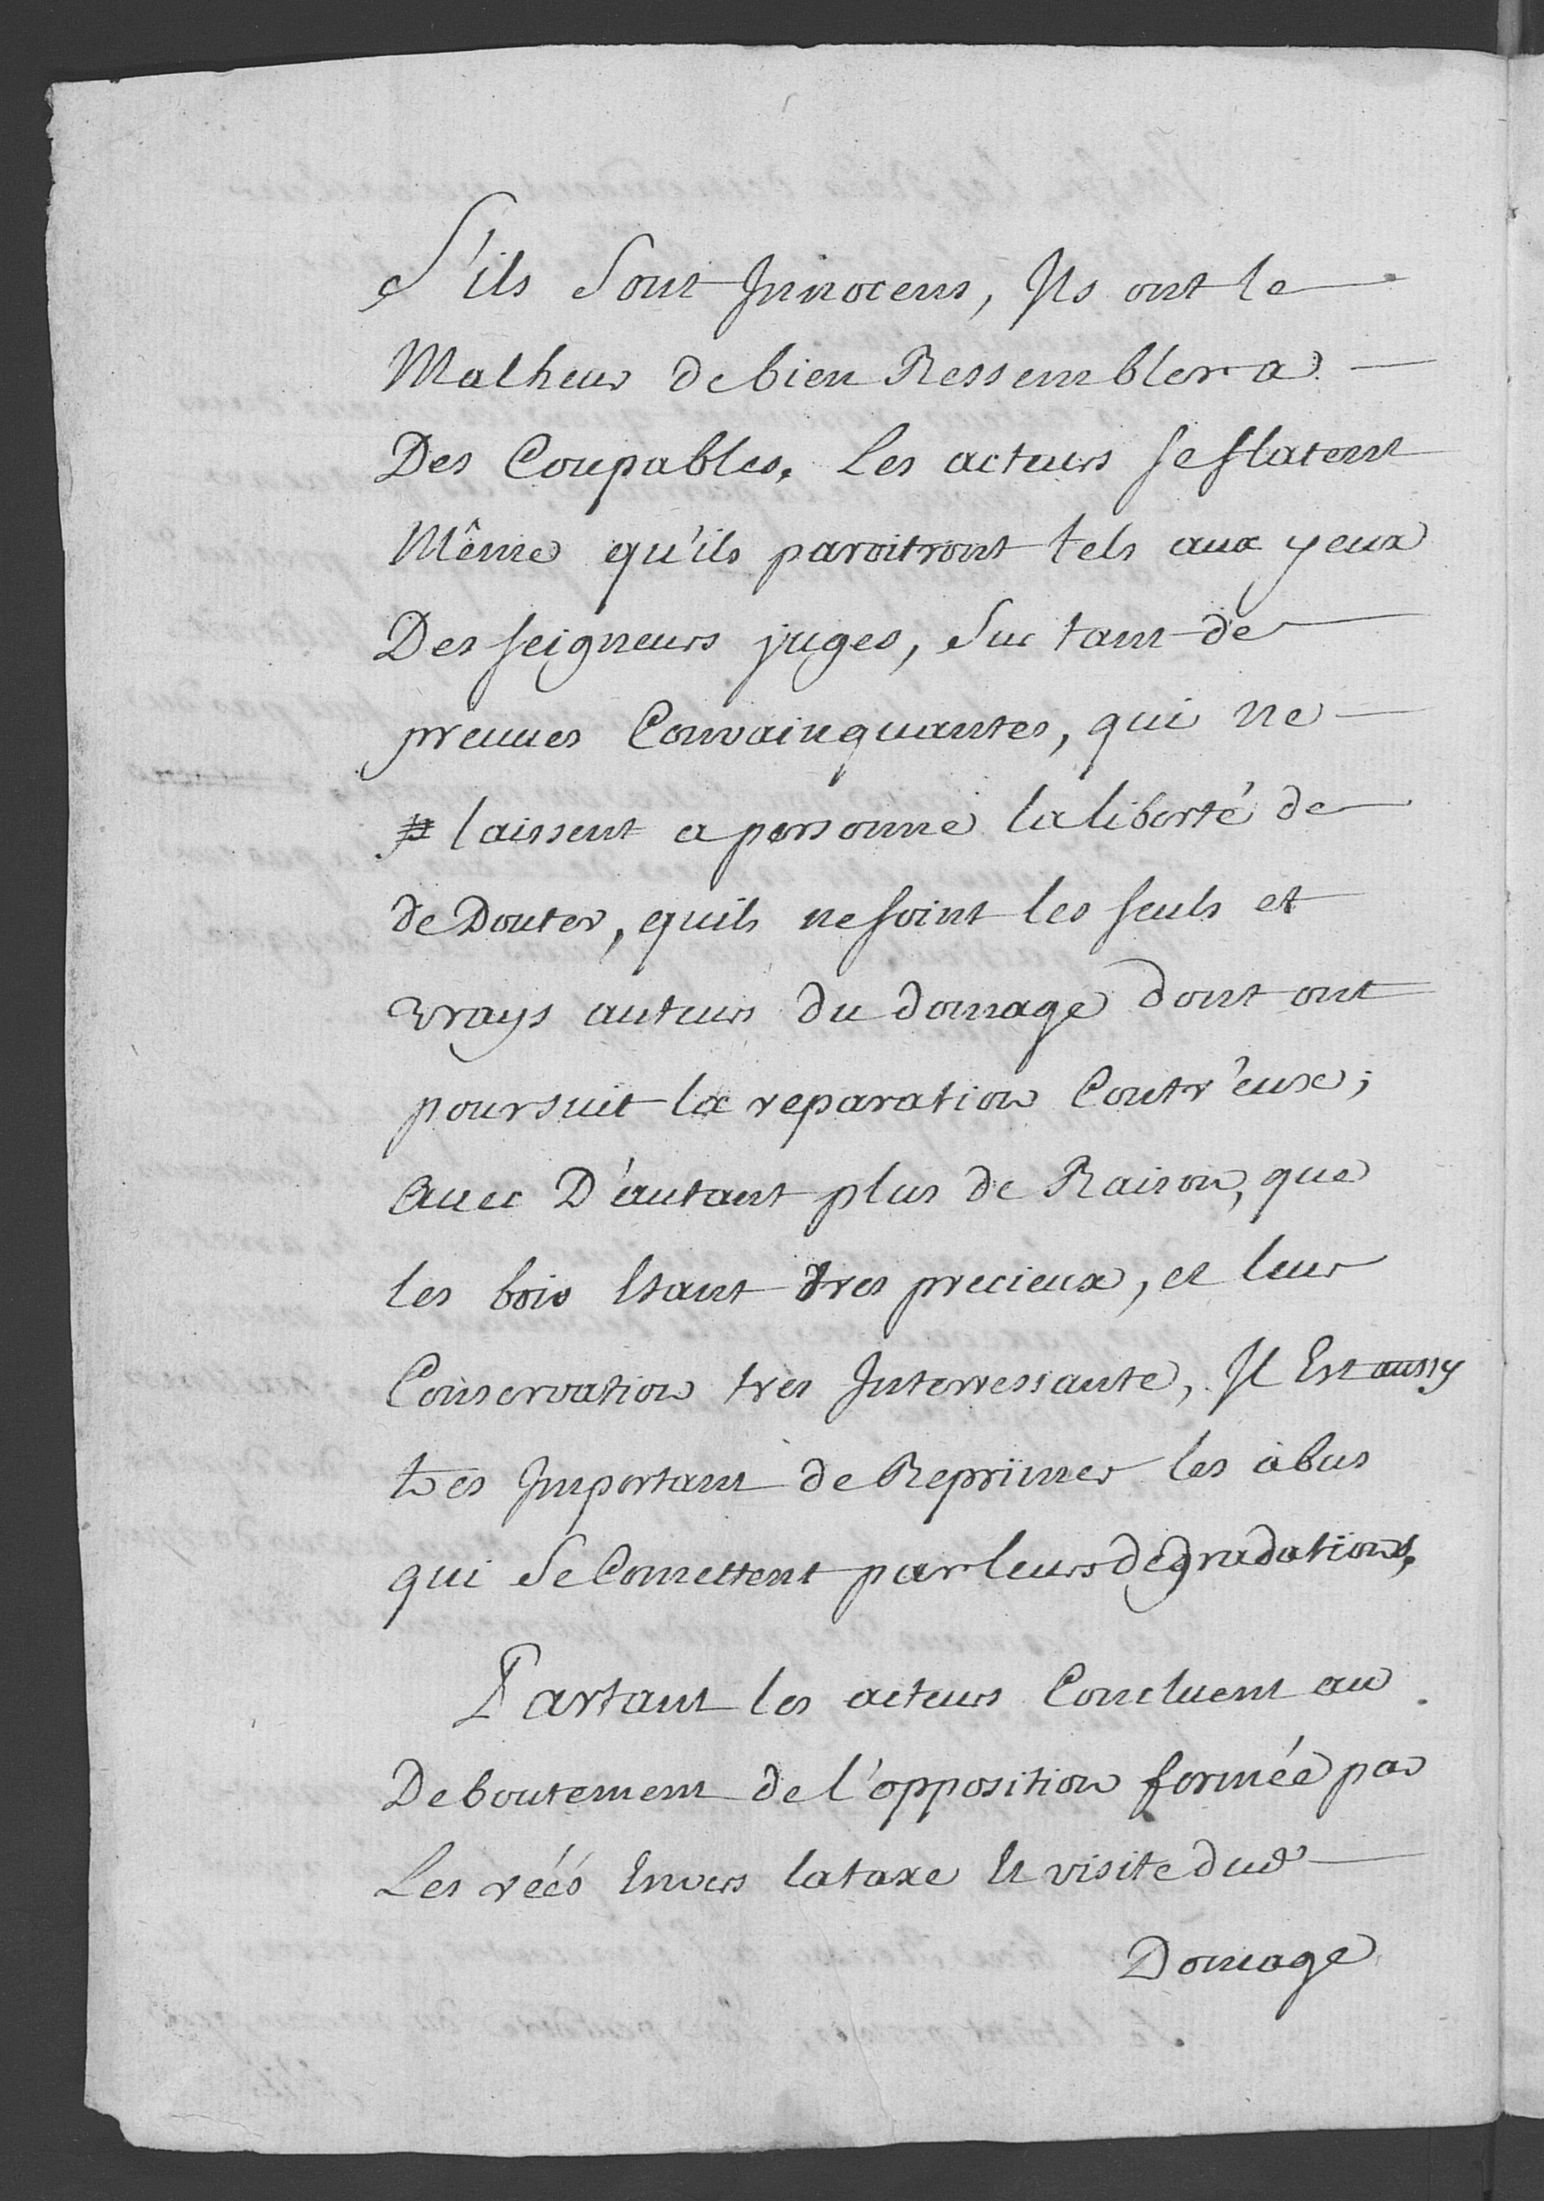 S'ils Sont Innocens, Ils ont le
Malheur de bien Ressembler a
Des Coupables. Les acteurs se flatent
Même qu'ils paroitront tels aux yeux
Des seigneurs juges, Sur tant de
preuues Convainquantes, qui ne
laissent a personne la liberté de
de Douter, quils ne soint les seuls et
vrays auteurs du domage dont ont
poursuit la reparation Contr'eux;
auec D'autant plus de Raison, que
les bois Etant tres precieux, et leur
Conservation très Interressante, Il Est aussy
tres Important de Reprimer les abus
qui Se Comettent par leurs dégradations.
Partant les acteurs Concluent au
Deboutement de l'opposition formée par
Les réés Envers la taxe Et visite dud
Domage